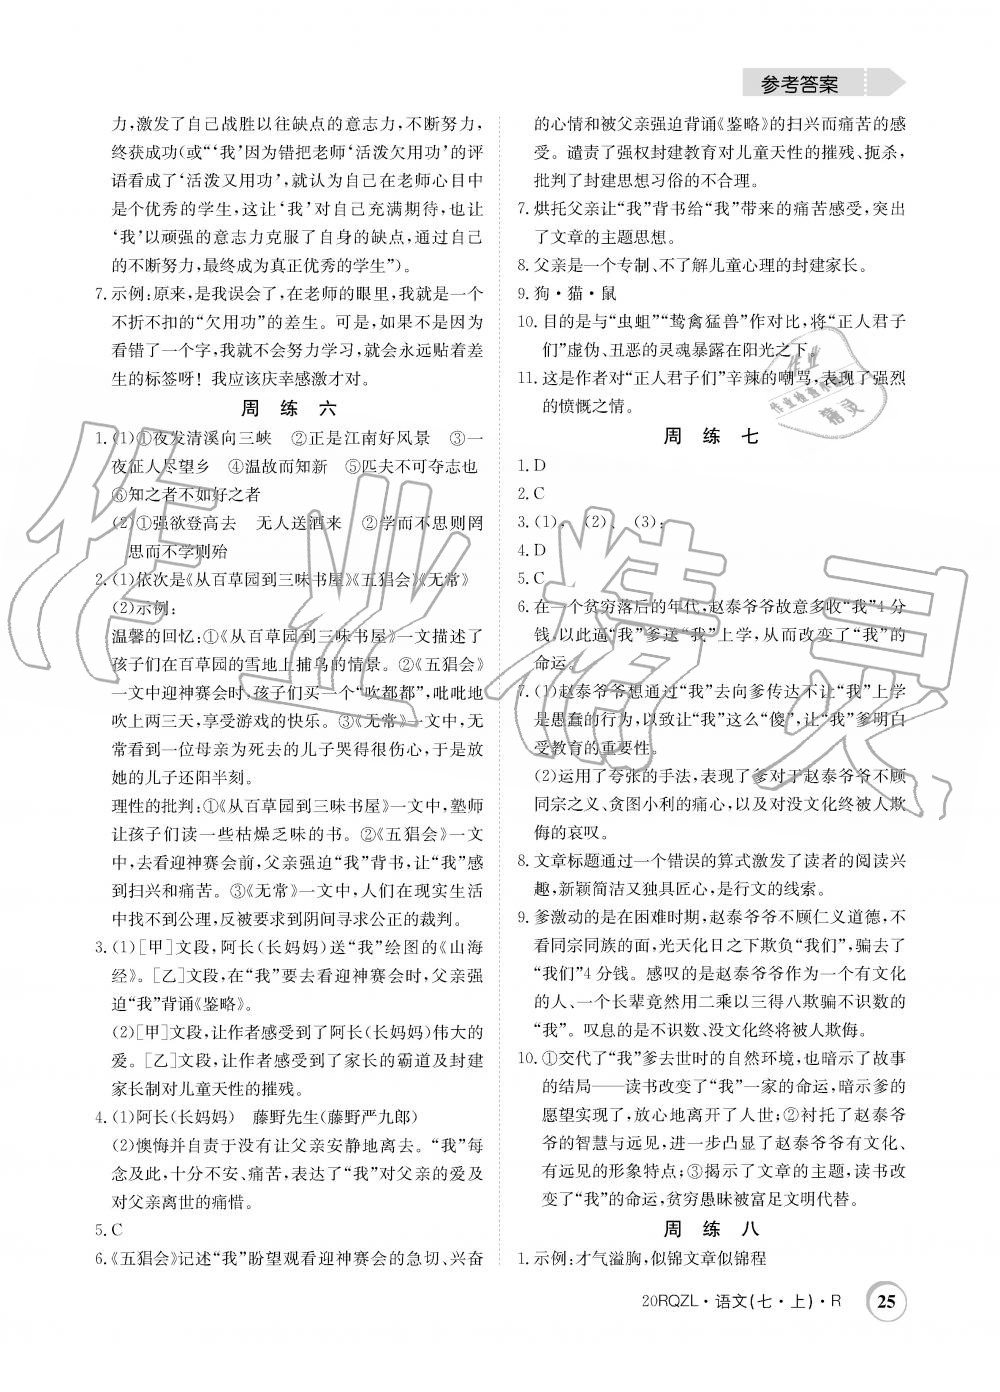 参考答案
力,激发了自己战胜以往缺点的意志力,不断努力,
终获成功(或“‘我’因为错把老师‘活泼欠用功’的评
语看成了‘活泼又用功’,就认为自己在老师心目中
是个优秀的学生,这让‘我’对自己充满期待,也让
‘我’以顽强的意志力克服了自身的缺点,通过自己
的不断努力,最终成为真正优秀的学生”)。
7. 示例:原来,是我误会了,在老师的眼里,我就是一个
不折不扣的“欠用功”的差生。可是,如果不是因为
看错了一个字,我就不会努力学习,就会永远贴着差
生的标签呀！我应该庆幸感激才对。
周 练 六
1. (1)①夜发清溪向三峡 ②正是江南好风景 ③一
夜征人尽望乡 ④温故而知新 ⑤匹夫不可夺志也
⑥知之者不如好之者
(2)①强欲登高去 无人送酒来 ②学而不思则罔
思而不学则殆
2. (1)依次是《从百草园到三味书屋》《五猖会》《无常》
(2)示例:
温馨的回忆:①《从百草园到三味书屋》一文描述了
孩子们在百草园的雪地上捕鸟的情景。②《五猖会》
一文中迎神赛会时,孩子们买一个“吹都都”,吡吡地
吹上两三天,享受游戏的快乐。③《无常》一文中,无
常看到一位母亲为死去的儿子哭得很伤心,于是放
她的儿子还阳半刻。
理性的批判:①《从百草园到三味书屋》一文中,塾师
让孩子们读一些枯燥乏味的书。②《五猖会》一文
中,去看迎神赛会前,父亲强迫“我”背书,让“我”感
到扫兴和痛苦。③《无常》一文中,人们在现实生活
中找不到公理,反被要求到阴间寻求公正的裁判。
3. (1)[甲]文段,阿长(长妈妈)送“我”绘图的《山海
经》。[乙]文段,在“我”要去看迎神赛会时,父亲强
迫“我”背诵《鉴略》。
(2)[甲]文段,让作者感受到了阿长(长妈妈)伟大的
爱。[乙]文段,让作者感受到了家长的霸道及封建
家长制对儿童天性的摧残。
4. (1)阿长(长妈妈) 藤野先生(藤野严九郎)
(2)懊悔并自责于没有让父亲安静地离去。“我”每
念及此,十分不安、痛苦,表达了“我”对父亲的爱及
对父亲离世的痛惜。
5. C
6.《五猖会》记述“我”盼望观看迎神赛会的急切、兴奋
的心情和被父亲强迫背诵《鉴略》的扫兴而痛苦的感
受。谴责了强权封建教育对儿童天性的摧残、扼杀,
批判了封建思想习俗的不合理。
7. 烘托父亲让“我”背书给“我”带来的痛苦感受,突出
了文章的主题思想。
8. 父亲是一个专制、不了解儿童心理的封建家长。
9. 狗·猫·鼠
10. 目的是与“虫蛆”“鸷禽猛兽”作对比,将“正人君子
们”虚伪、丑恶的灵魂暴露在阳光之下。
11. 这是作者对“正人君子们”辛辣的嘲骂,表现了强烈
的愤慨之情。
周 练 七
1. D
2. C
3. (1), (2)、 (3);
4. D
5. C
6. 在一个贫穷落后的年代,赵泰爷爷故意多收“我”4分
钱,以此逼“我”爹送“我”上学,从而改变了“我”的
命运。
7. (1)赵泰爷爷想通过“我”去向爹传达不让“我”上学
是愚蠢的行为,以致让“我”这么“傻”,让“我”爹明白
受教育的重要性。
(2)运用了夸张的手法,表现了爹对于赵泰爷爷不顾
同宗之义、贪图小利的痛心,以及对没文化终被人欺
侮的哀叹。
8. 文章标题通过一个错误的算式激发了读者的阅读兴
趣,新颖简洁又独具匠心,是行文的线索。
9. 爹激动的是在困难时期,赵泰爷爷不顾仁义道德,不
看同宗同族的面,光天化日之下欺负“我们”,骗去了
“我们”4分钱。感叹的是赵泰爷爷作为一个有文化
的人、一个长辈竟然用二乘以三得八欺骗不识数的
“我”。叹息的是不识数、没文化终将被人欺侮。
10. ①交代了“我”爹去世时的自然环境,也暗示了故事
的结局——读书改变了“我”一家的命运,暗示爹的
愿望实现了,放心地离开了人世;②衬托了赵泰爷
爷的智慧与远见,进一步凸显了赵泰爷爷有文化、
有远见的形象特点;③揭示了文章的主题,读书改
变了“我”的命运,贫穷愚昧被富足文明代替。
周 练 八
1. 示例:才气溢胸,似锦文章似锦程
20RQZL·语文(七·上)·R 25
作业精灵